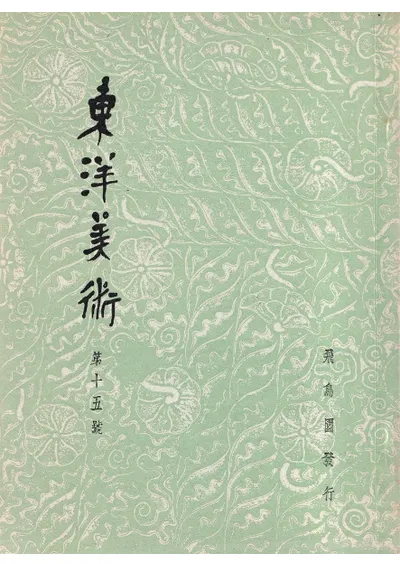 東洋美術
第十五號
飛鳥園發行